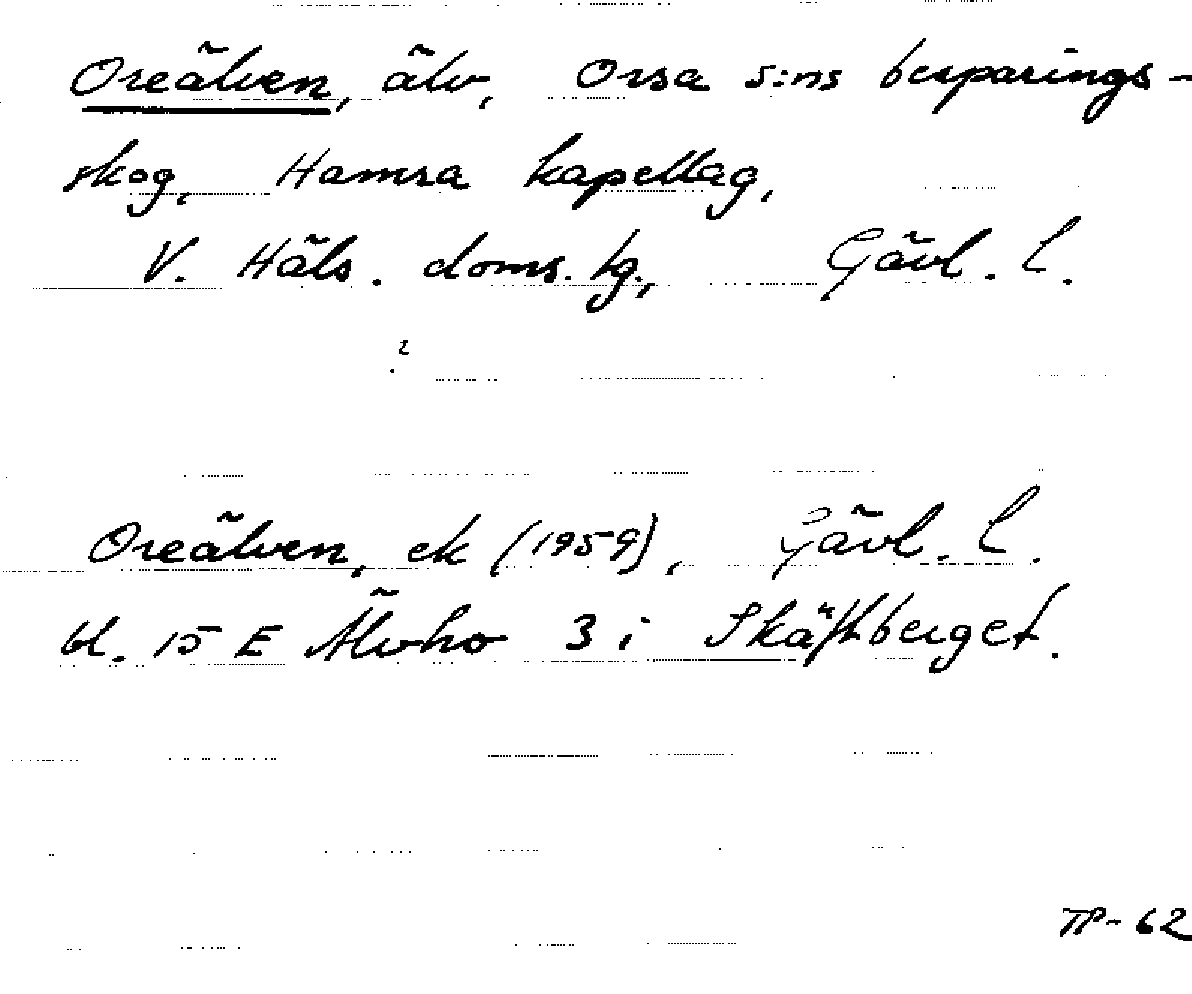 Oreälven, älv, Orsa s:ns besparings-
skog, Hamra kapellag,
V. Häls. doms. lg., Gävl. l.
Oreälven, ek (1959), Gävl. l.
bl. 15 E Älvho 3 i Skäftberget.
TP-62